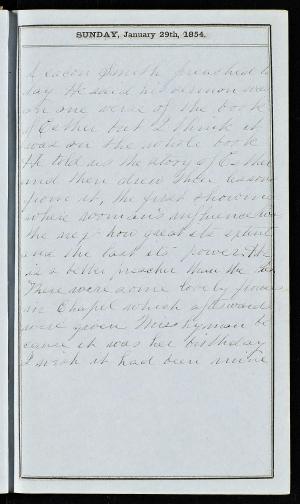 SUNDAY, January 29th, 1854.
Deacon Smith preached to
day He said his sermon was
on one verse of the book
of Esther but I think it
was on the whole book
He told us the story of Esther
and then drew three lessons
from it, the first showing
where woman's influence was
the next how great its extent
and the last its power. He
is a better preacher than we
There were some lovely
in Chapel which afterward
were given Miss Lyman be
cause it was her birthday
I wish it had been mine